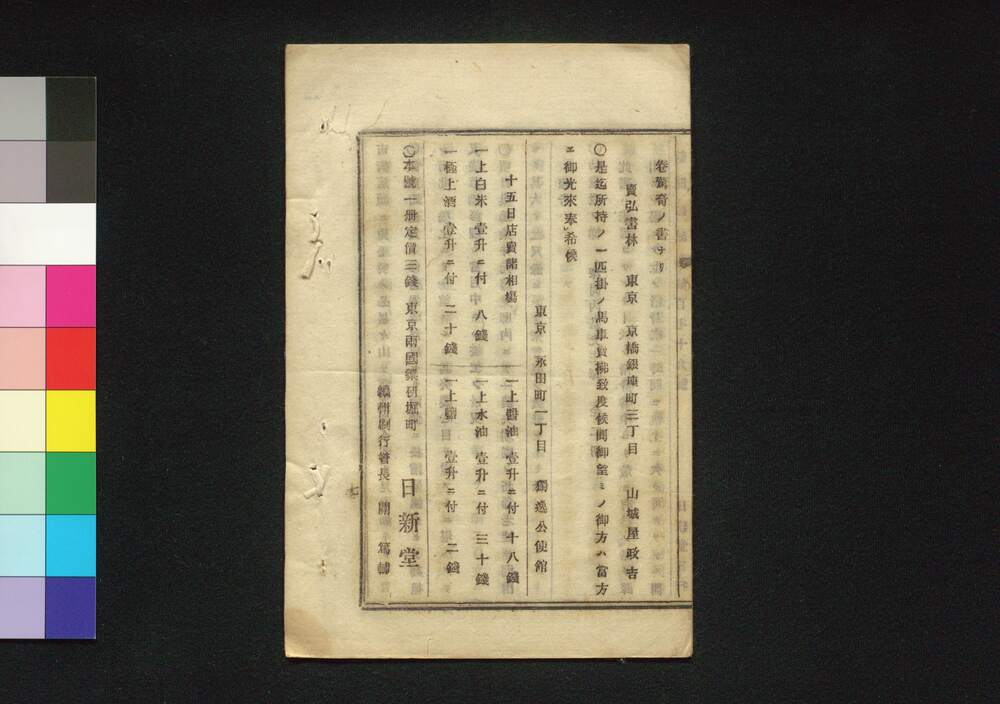 卷號奇ノ書ナリ
賣弘書林　東京　京橋銀座町三丁目　山城屋政吉
〇是迄所持ノ一匹掛ノ馬車賣拂致度候間御望ミノ御方ハ當方
ニ御光來奉希候
東京　永田町一丁目　獨逸公使館
十五日店賣諸相場
一上醬油　壹升ニ付　十八錢
一上白米　壹升ニ付　八錢
一上水油　壹升ニ付　三十錢
一極上酒　壹升ニ付　二十錢
一上鹽　壹升ニ付　二錢
〇本號一册定價三錢　東京兩國藥研堀町　日新堂
編輯刷行會長　關　篤輔